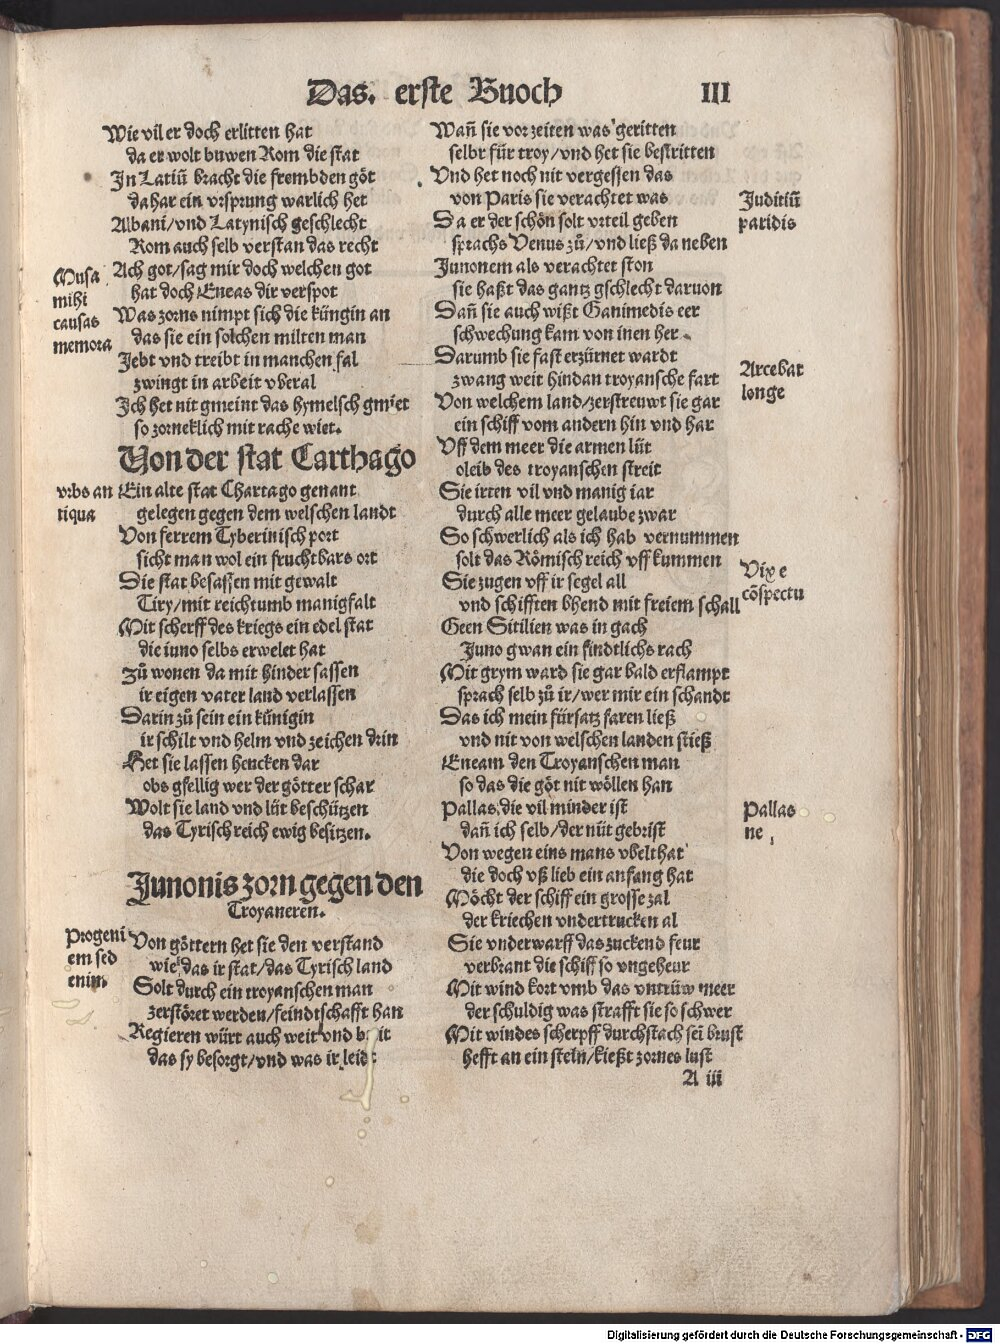 Das. erste Buoch III
Wie vil er doch erlitten hat
da er wolt buwen Rom die stat
In Latiū bracht die frembden göt
dahar ein vrsprung warlich het
Albani/vnd Latynisch geschlecht
Rom auch selb verstan das recht
Musa mihi causas memora
Ach got/sag mir doch welchen got
hat doch Eneas dir verspot
Was zorns nimpt sich die küngin an
das sie ein solchen milten man
Jebt vnd treibt in manchen fal
zwingt in arbeit vberal
Ich het nit gmeint das hymelsch gmüet
so zorneklich mit rache wiet.
Von der stat Carthago
vrbs an
tiqua
Ein alte stat Chartago genant
gelegen gegen dem welschen landt
Von ferrem Tyberinisch port
sicht man wol ein fruchtbars ort
Die stat besassen mit gewalt
Tiry/mit reichtumb manigfalt
Mit scherff des kriegs ein edel stat
die iuno selbs erwelet hat
Zů wonen da mit hinder sassen
ir eigen vater land verlassen
Darin zů sein ein künigin
ir schilt vnd helm vnd zeichen drin
Het sie lassen hencken dar
obs gfellig wer der götter schar
Wolt sie land vnd lüt beschützen
das Tyrisch reich ewig besitzen.
Junonis zorn gegen den
Troyaneren.
Progeni
em sed
enim.
Von göttern het sie den verstand
wie das ir stat/das Tyrisch land
Solt durch ein troyanschen man
zerstöret werden/feindtschafft han
Regieren würt auch weit vnd breit
das sy besorgt/vnd was ir leidt
Wañ sie vor zeiten was geritten
selbr für troy/vnd het sie bestritten
Vnd het noch nit vergessen das
von Paris sie verachtet was
Juditiū
paridis
Da er der schön solt vrteil geben
sprachs Venus zů/vnd ließ da neben
Junonem als verachtet ston
sie haßt das gantz gschlecht daruon
Dañ sie auch wißt Ganimedis eer
schwechung kam von inen her
Darumb sie fast erzürnet wardt
zwang weit hindan troyansche fart
Arcebat
longe
Von welchem land/zerstreuwt sie gar
ein schiff vom andern hin vnd har
Vff dem meer die armen lüt
oleib des troyanschen streit
Sie irten vil vnd manig iar
durch alle meer gelaube zwar
So schwerlich als ich hab vernummen
solt das Römisch reich vff kummen
Vix e
cōspectu
Sie zugen vff ir segel all
vnd schifften bhend mit freiem schall
Geen Sitilien was in gach
Juno gwan ein findtlichs rach
Mit grym ward sie gar bald erflampt
sprach selb zů ir/wer mir ein schandt
Das ich mein fürsatz faren ließ
vnd nit von welschen landen stieß
Eneam den Troyanschen man
so das die göt nit wöllen han
Pallas
ne
Pallas, die vil minder ist
dañ ich selb/der nüt gebrist
Von wegen eins mans vbelthat
die doch vß lieb ein anfang hat
Möcht der schiff ein grosse zal
der kriechen vndertrucken al
Sie vnderwarff das zuckend feur
verbrant die schiff so vngeheur
Mit wind kort vmb das vntrüw meer
der schuldig was strafft sie so schwer
Mit windes scherpff durchstach sei brust
hefft an ein steln/ließt zornes lust
A iii
Digitalisierung gefördert durch die Deutsche Forschungsgemeinschaft - DFG